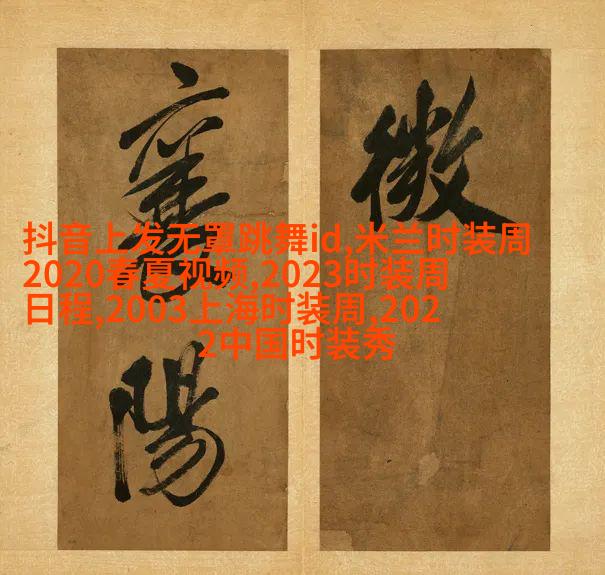 微
襄陽
抖音上发无罩跳舞id,米兰时装周
2020春夏视频,2023时装周
日程,2003上海时装周,202
2中国时装秀